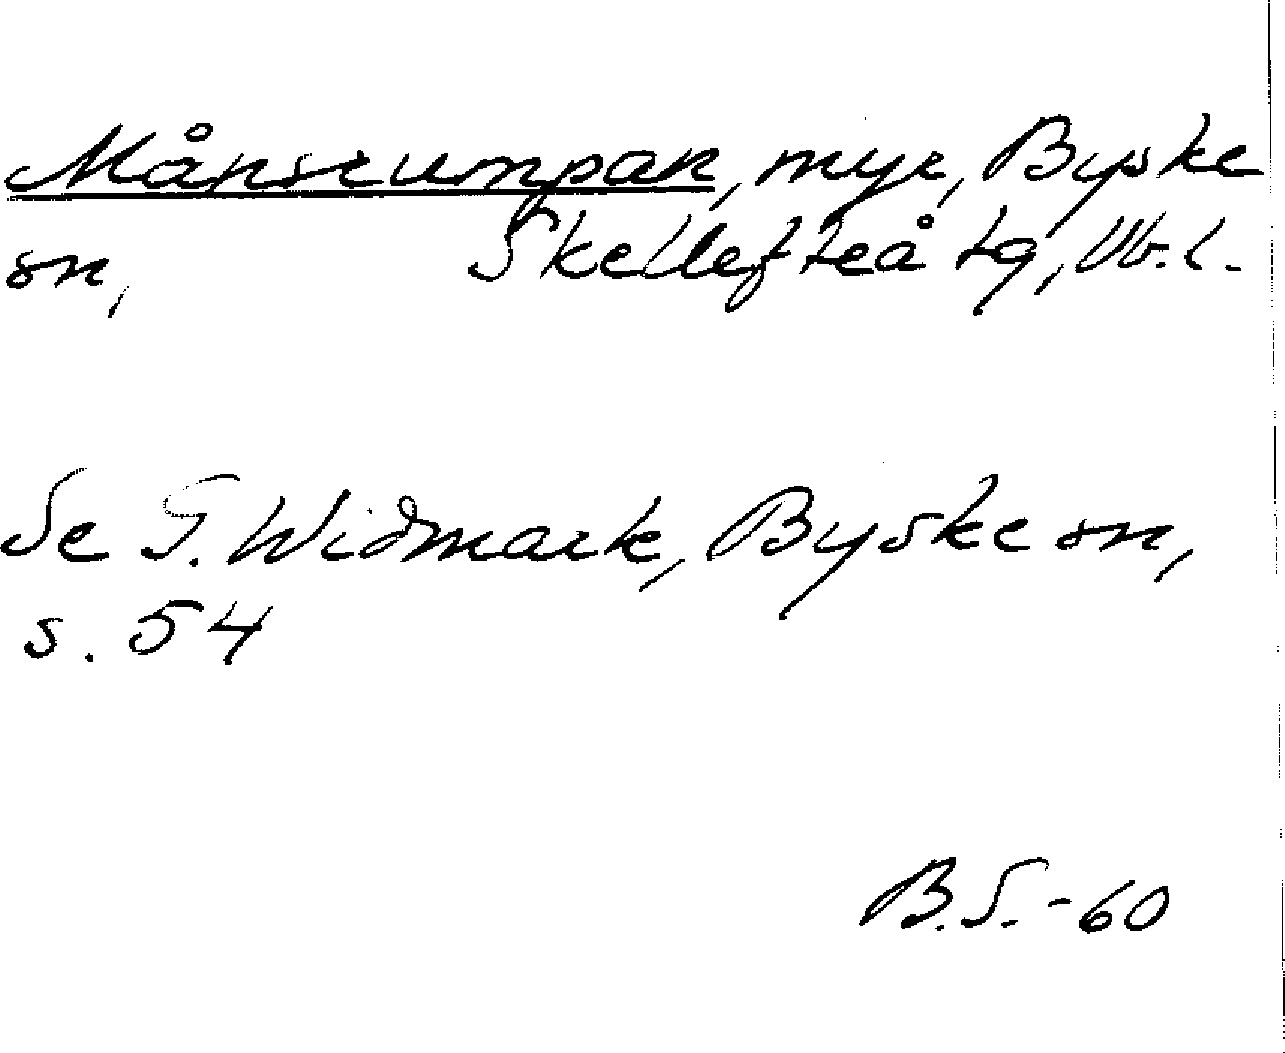 Månsrumpan, myr, Byske
sn, Skellefteå tg, Vb.l.
Se G. Widmark, Byske sn,
s. 54
B.S.-60